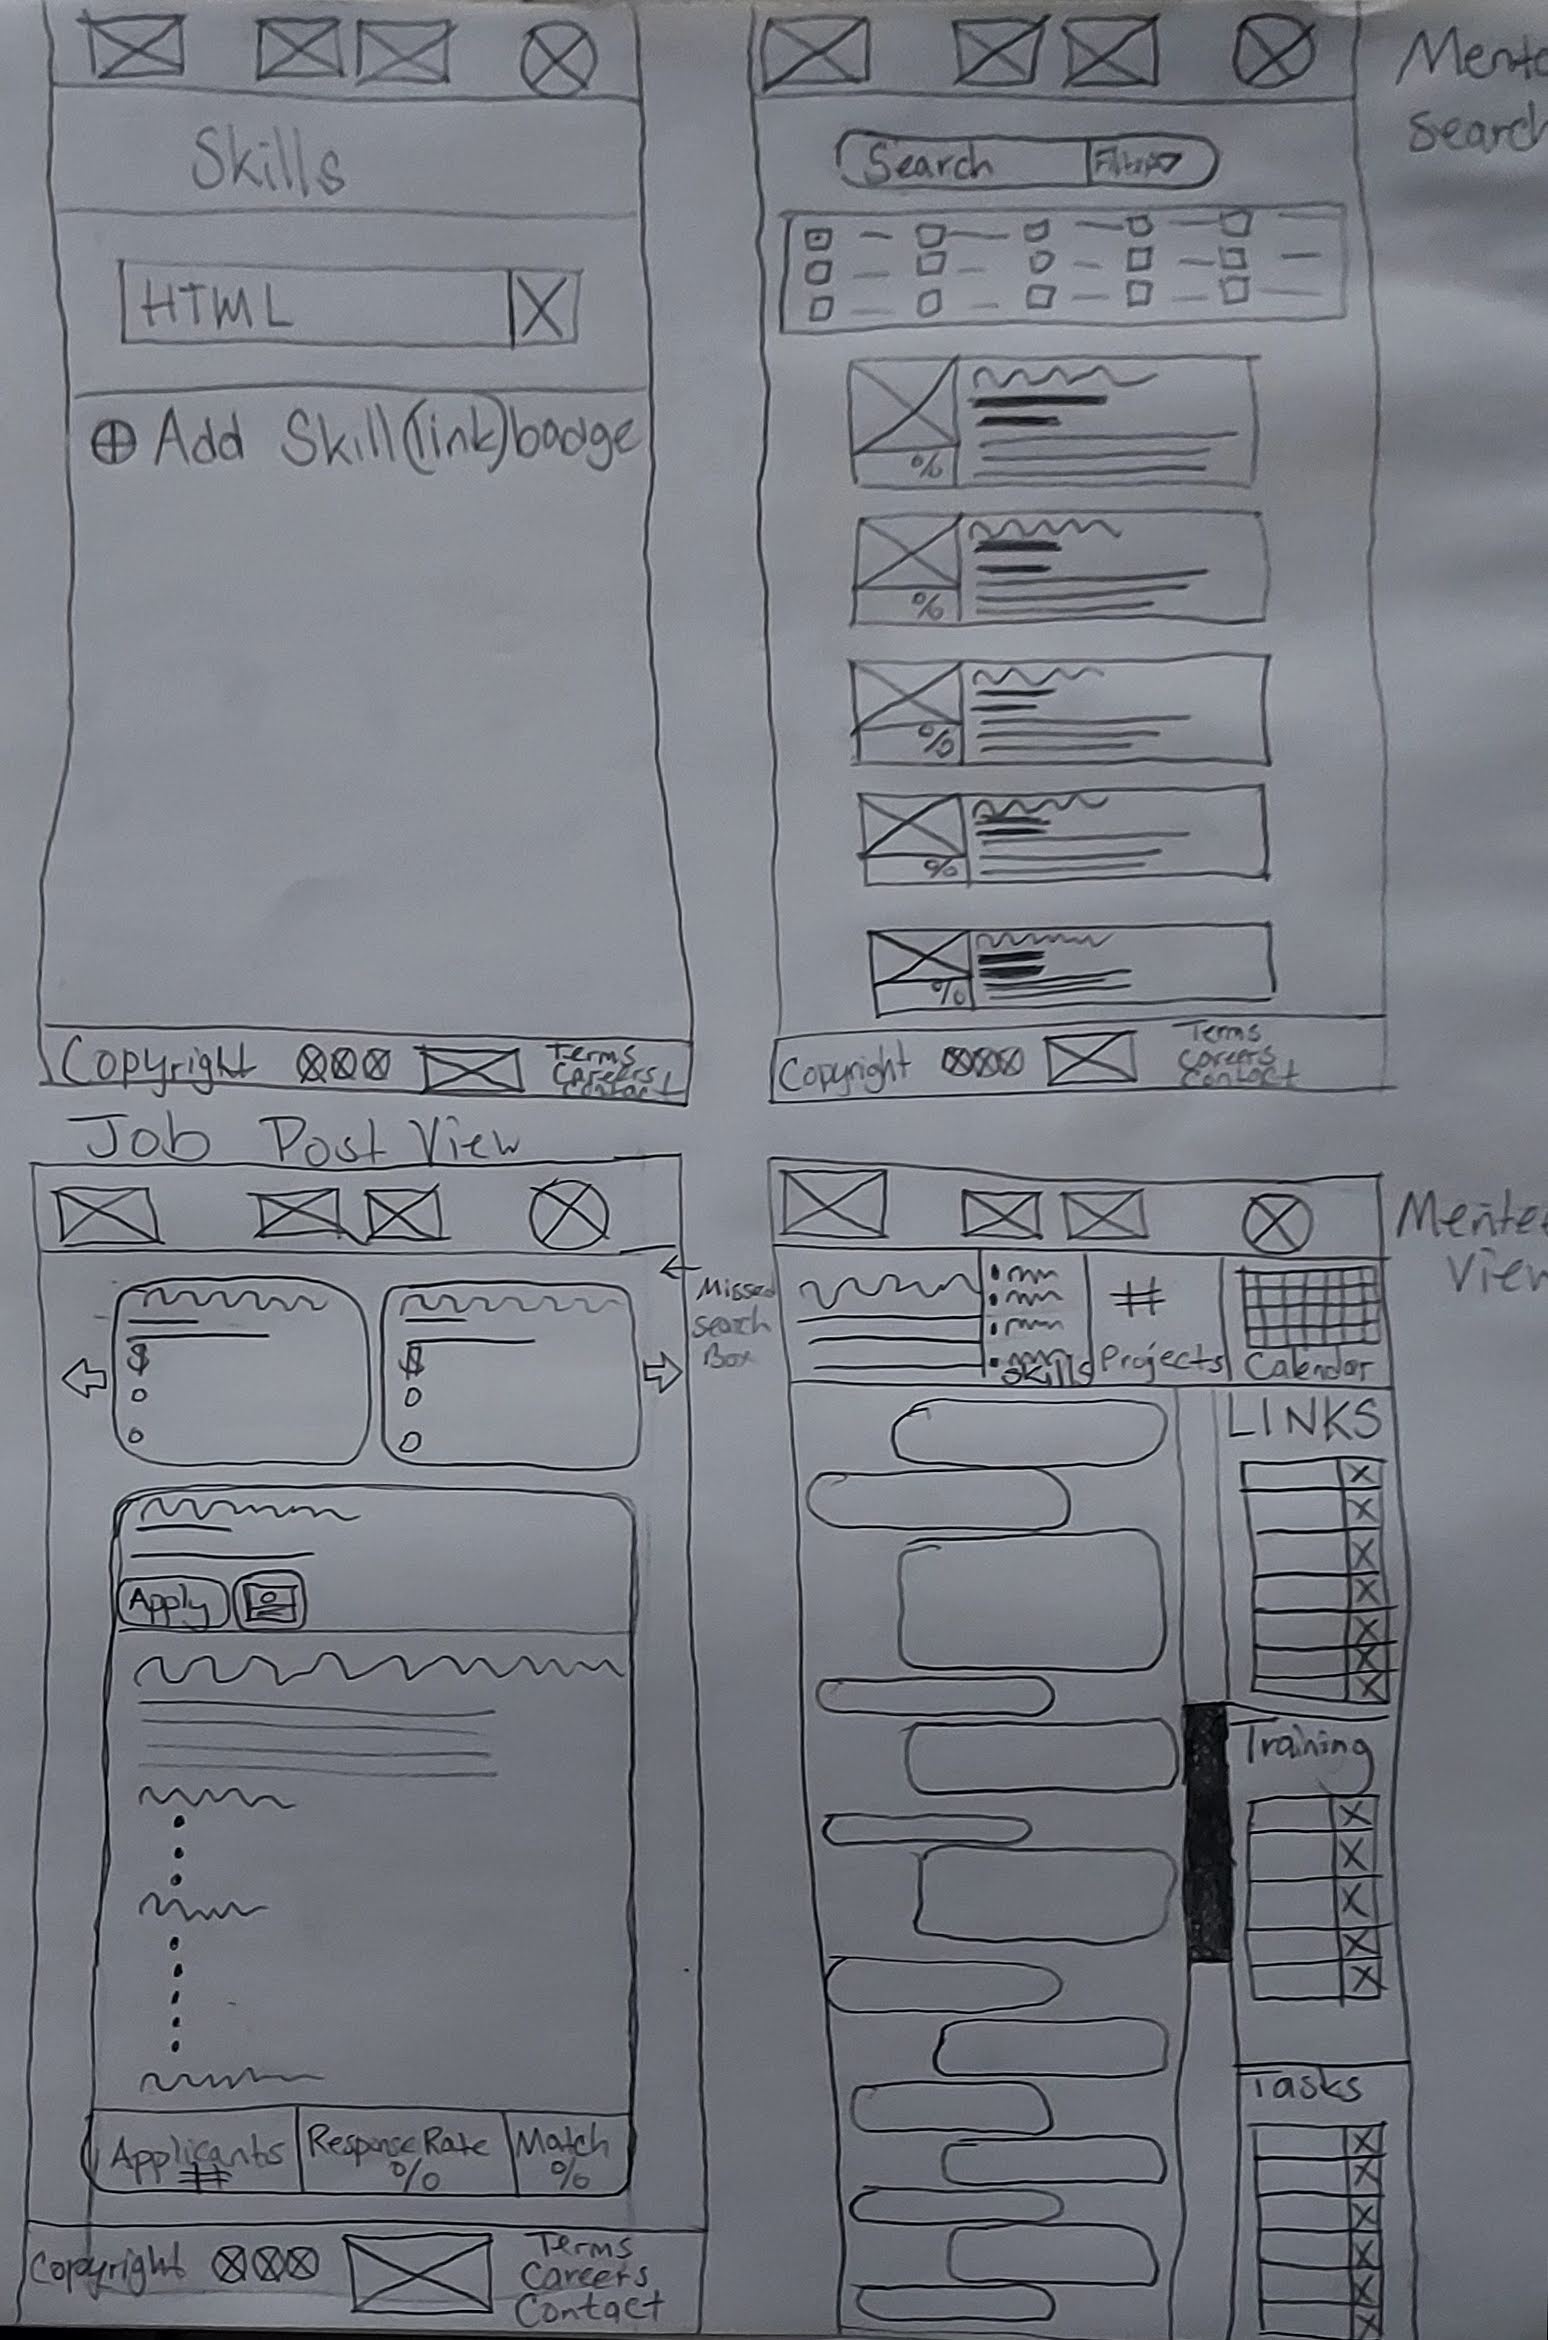 Skills
HTML X
Add Skill (link) badge
Copyright
Terms
Careers
Contact
search
Search
%
%
%
%
%
Copyright
Terms
Careers
Contact
Job Post View
Missed
search
Box
$
$
Apply
Applicants
#
Response Rate
%
Match
%
Copyright
Terms
Careers
Contact
Skills
#
Projects
Calendar
LINKS
X
X
X
X
X
X
X
Training
X
X
X
X
X
Tasks
X
X
X
X
X
X